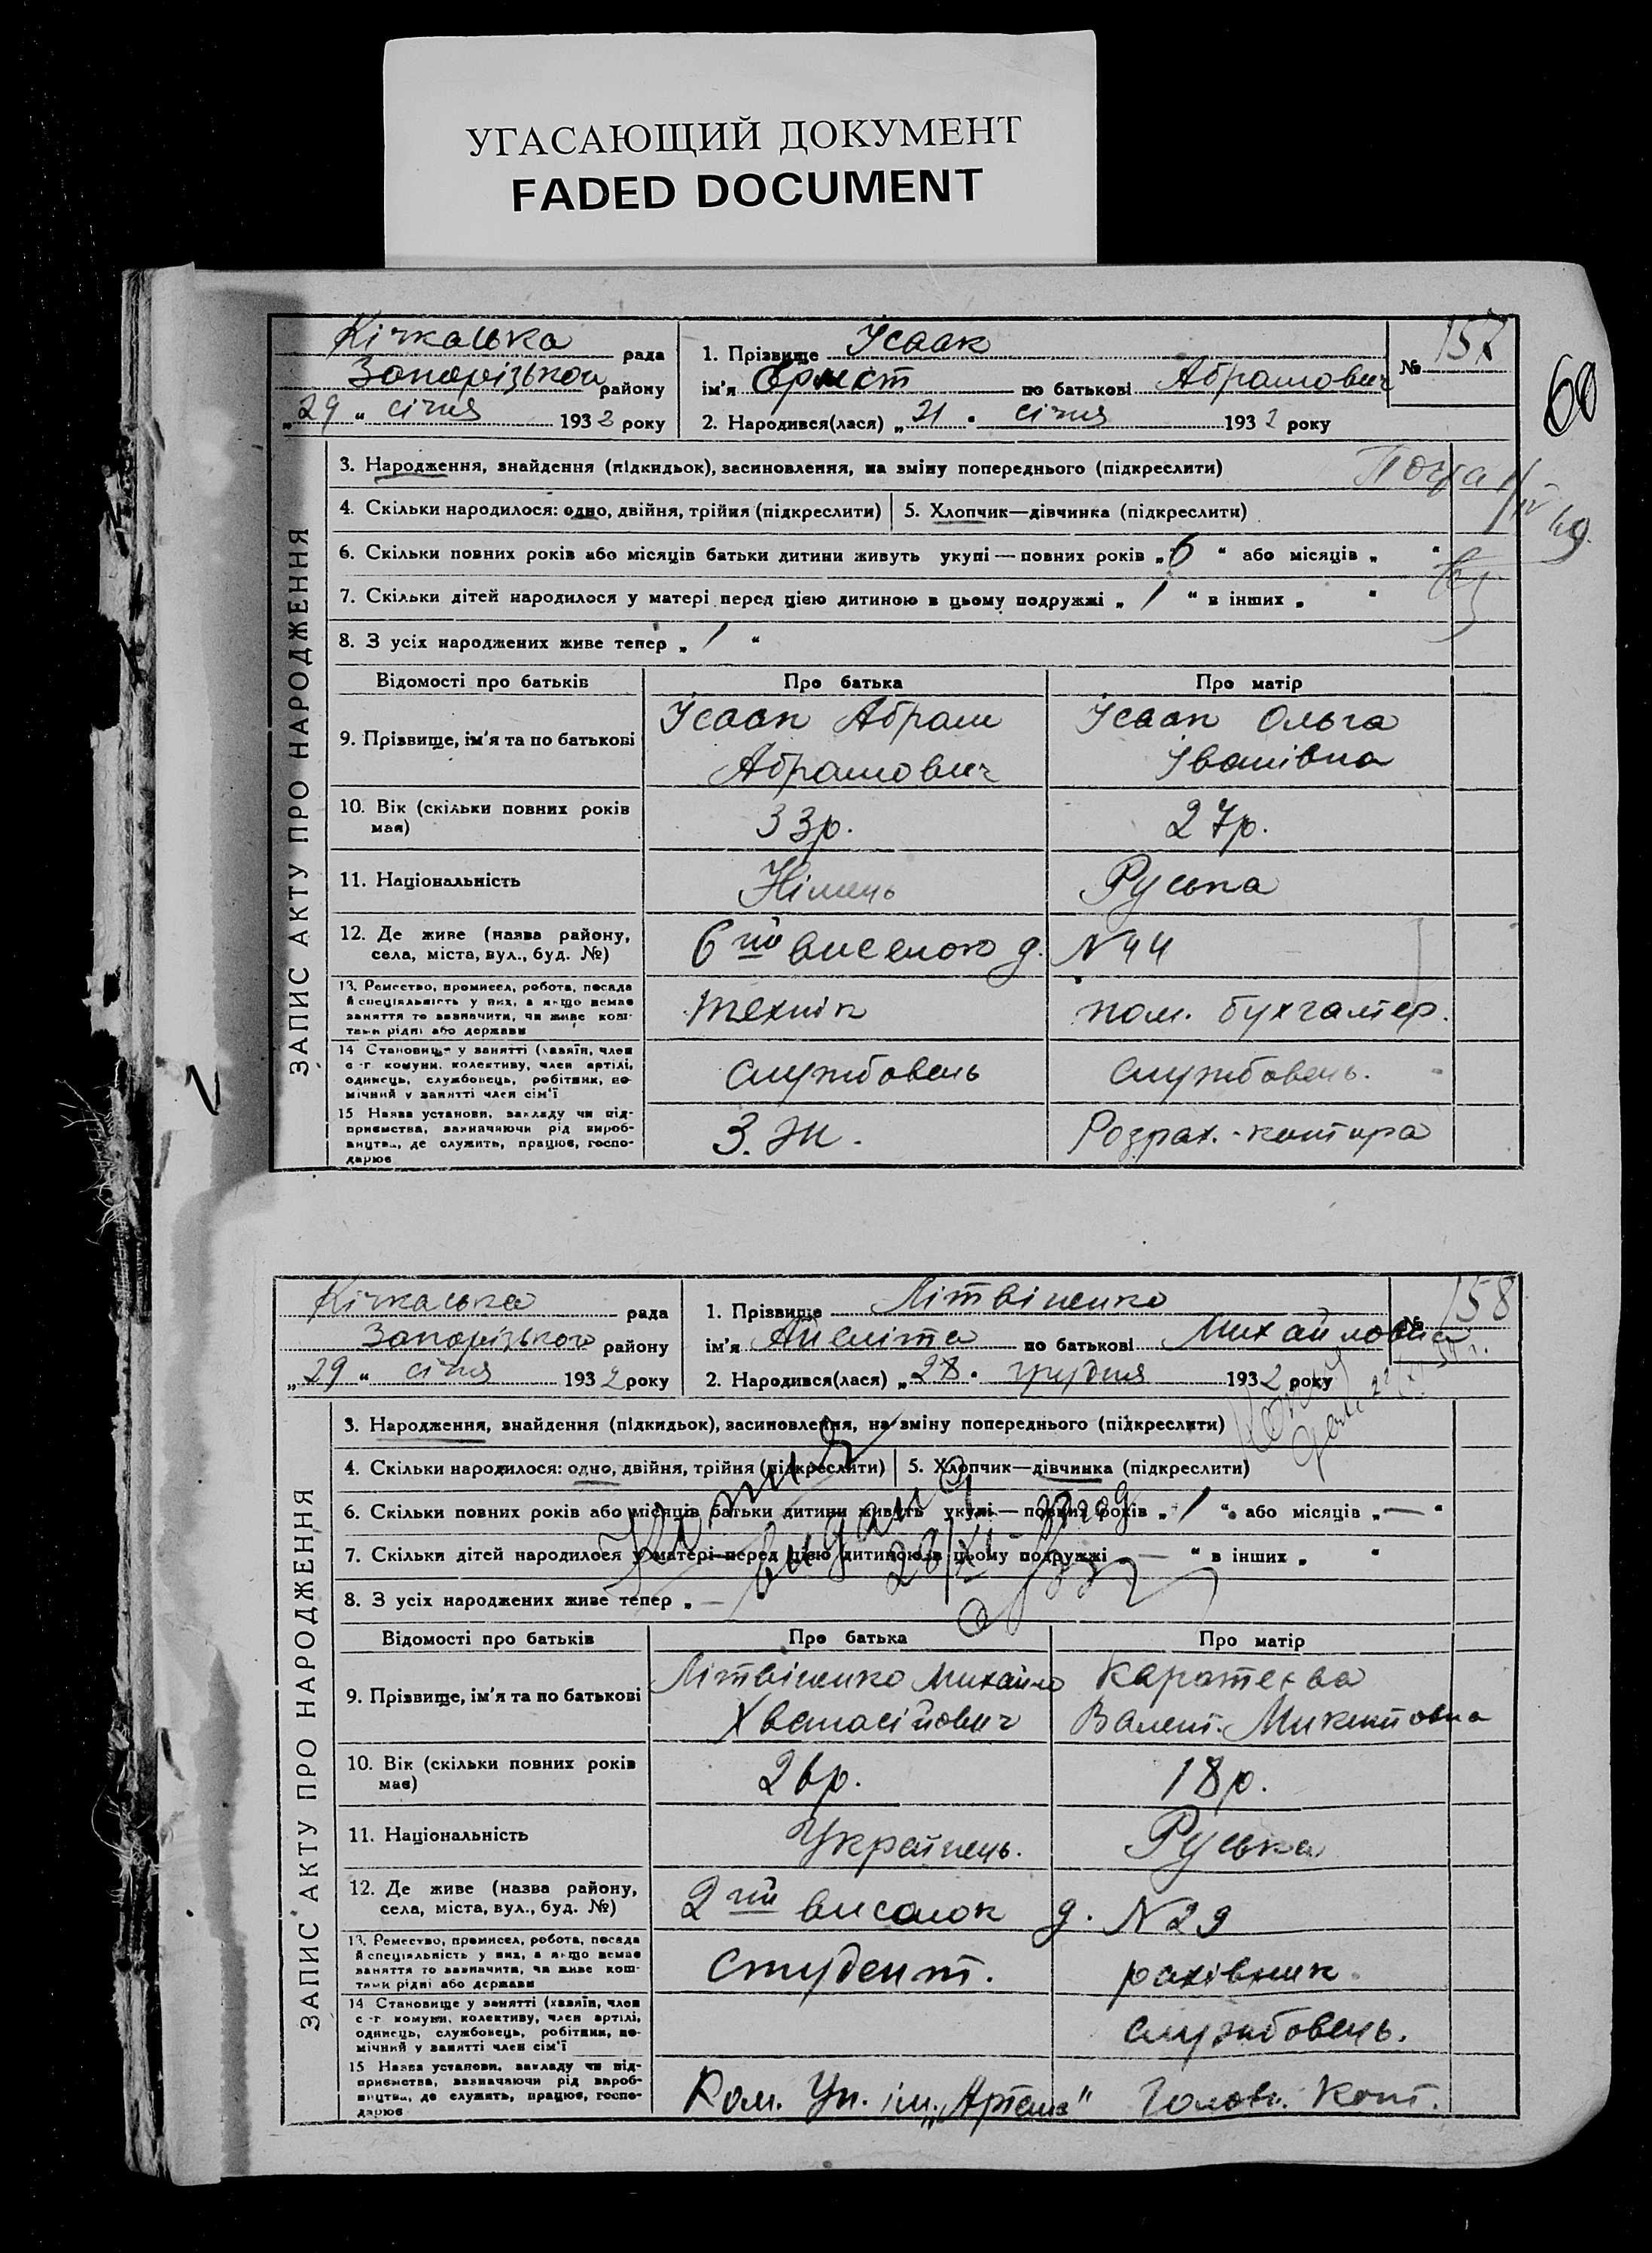 УГАСАЮЩИЙ ДОКУМЕНТ
FADED DOCUMENT
Кічкаська рада
Запорізького району
„29“ січня 1932 року
1. Прізвище Ісаак
ім'я Ернст по батькові Абрамович
2. Народився(лася) „21“ січня 1932 року
№ 157
60
ЗАПИС АКТУ ПРО НАРОДЖЕННЯ
3. Народження, знайдення (підкидьок), засиновлення, на зміну попереднього (підкреслити)
4. Скільки народилося: одно, двійня, трійня (підкреслити) 5. Хлопчик—дівчинка (підкреслити)
6. Скільки повних років або місяців батьки дитини живуть укупі — повних років „6“ або місяців „ “
7. Скільки дітей народилося у матері перед цією дитиною в цьому подружжі „1“ в інших „ “
8. З усіх народжених живе тепер „1“
Відомості про батьків Про батька Про матір
9. Прізвище, ім'я та по батькові Ісаак Абрам Ісаак Ольга
Абрамович Іванівна
10. Вік (скільки повних років має) 33р. 27р.
11. Національність Німець Руська
12. Де живе (назва району, села, міста, вул., буд. №) 6ий виселок д. N 44
13. Ремество, промисел, робота, посада й спеціяльність у них, а якщо немає заняття то зазначити, чи живе коштами рідні або держави технік пом. бухгалтер.
14 Становище у занятті (хазяїн, член с-г комуни, колективу, член артілі, одинець, службовець, робітник, помічний у занятті член сім'ї службовець службовець.
15 Назва установи, закладу чи підприємства, зазначаючи рід виробництва, де служить, працює, господарює Розрах.-контора
Кічкаська рада
Запорізького району
„29“ січня 1932 року
1. Прізвище Літвіненко
ім'я Аеліта по батькові Михайловна
2. Народився(лася) „28“ грудня 1932 року
№ 158
ЗАПИС АКТУ ПРО НАРОДЖЕННЯ
3. Народження, знайдення (підкидьок), засиновлення, на зміну попереднього (підкреслити)
4. Скільки народилося: одно, двійня, трійня (підкреслити) 5. Хлопчик—дівчинка (підкреслити)
6. Скільки повних років або місяців батьки дитини живуть укупі — повних років „1“ або місяців „—“
7. Скільки дітей народилося у матері перед цією дитиною в цьому подружжі „— “ в інших „ “
8. З усіх народжених живе тепер „—
Відомості про батьків Про батька Про матір
9. Прізвище, ім'я та по батькові Літвіненко Михайло
Валент.
10. Вік (скільки повних років має) 26р. 18р.
11. Національність Українець. Руська
12. Де живе (назва району, села, міста, вул., буд. №) 2ий виселок д. N 29
13. Ремество, промисел, робота, посада й спеціяльність у них, а якщо немає заняття то зазначити, чи живе коштами рідні або держави студент. рахівник.
14 Становище у занятті (хазяїн, член с-г комуни, колективу, член артілі, одинець, службовець, робітник, помічний у занятті член сім'ї службовець.
15 Назва установи, закладу чи підприємства, зазначаючи рід виробництва, де служить, працює, господарює Ком. Ун. ім. „Артема" Головн. Конт.